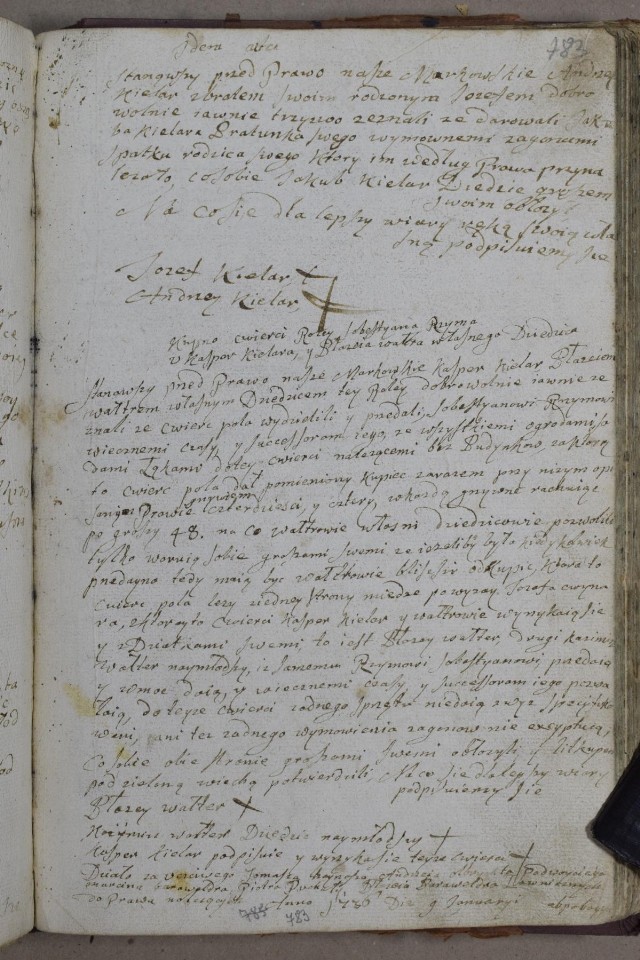 Idem
783
Stanąwszy przed Prawo nasze Markowskie Andrzey
Kielar zbratem swoim rodzonym Jozefem dobro
wolnie iawnie trzyzwo zeznali ze darowali Jaku
ba Kielara Bratunka swego wymownemi zagonami
spatku rodzica swego ktory im według Prawa przyna
lezało, co sobie Jakub Kielar Dziedzic groszem
swoim obłozył
Na co sie dla lepszy wiary ręką swoią wła
sną podpisuiemy sie
Jozef Kielar
Andrzey Kielar
Kupno cwierci Roley Sobestyana Rzyma
v Kaspra Kielara, y Błazeia waltra własnego Dziedzica
Stanowszy przed Prawo nasze Markowskie Kasper Kielar Błazeiem
waltrem własnym Dziedzicem tey Roley dobrowolnie iawnie ze
znali ze cwierc pola wydzielili y przedali Sobestyanowi Rzymowi
wiecznemi czasy y successorom iego, ze wszystkiemi ogrodami so
dami Łąkami do tey cwierci nalezącemi bez Budynkow, za ktorą
to cwierc pola dał pomieniony Kupiec zarazem przy nizym opi
sanym Prawie grzywien czterdziesci, y cztery, w kozdą grzywne rachuiąc
po groszy 48. na co waltrowie własni dziedzicowie pozwolili
tylko waruią sobie groszami swemi ze iezeliby było kiedykolwiek
przedayno tedy maią byc waltrowie bliszsi odkupic, ktora to
cwierc pola lezy z iedney strony miedze powyzey Jozefa cwyna
ra, z ktorey to cwierci Kasper Kielar y waltrowie wyrzykaią sie
y z Dziatkami swemi, to iest Błazey walter, drugi kazimierz
walter naymłodszy, iz samemu Rzymowi Sobestyanowi przedaią
y w moc daią, y wiecznemi czasy y successorom iego pozwa
laią, do teyze cwierci zadnego sprzętu niedaią
ani tez zadnego wymowienia zagonow nie excypuią,
co sobie obie stronie groszami swemi obłozyli y litkupem
podzieliną wiechą potwierdzili, Na co sie dla lepszy wiary
podpisuiemy sie
Błazey walter
walter Dziedzic naymłodszy
Kasper Kielar podpisuie y wyrzykasie teyze cwierci
Działo za Tomasza Andrzeia Podwoyciego
Piotra
do Prawa nalezących Anno 1736 Die 9 January
783
783